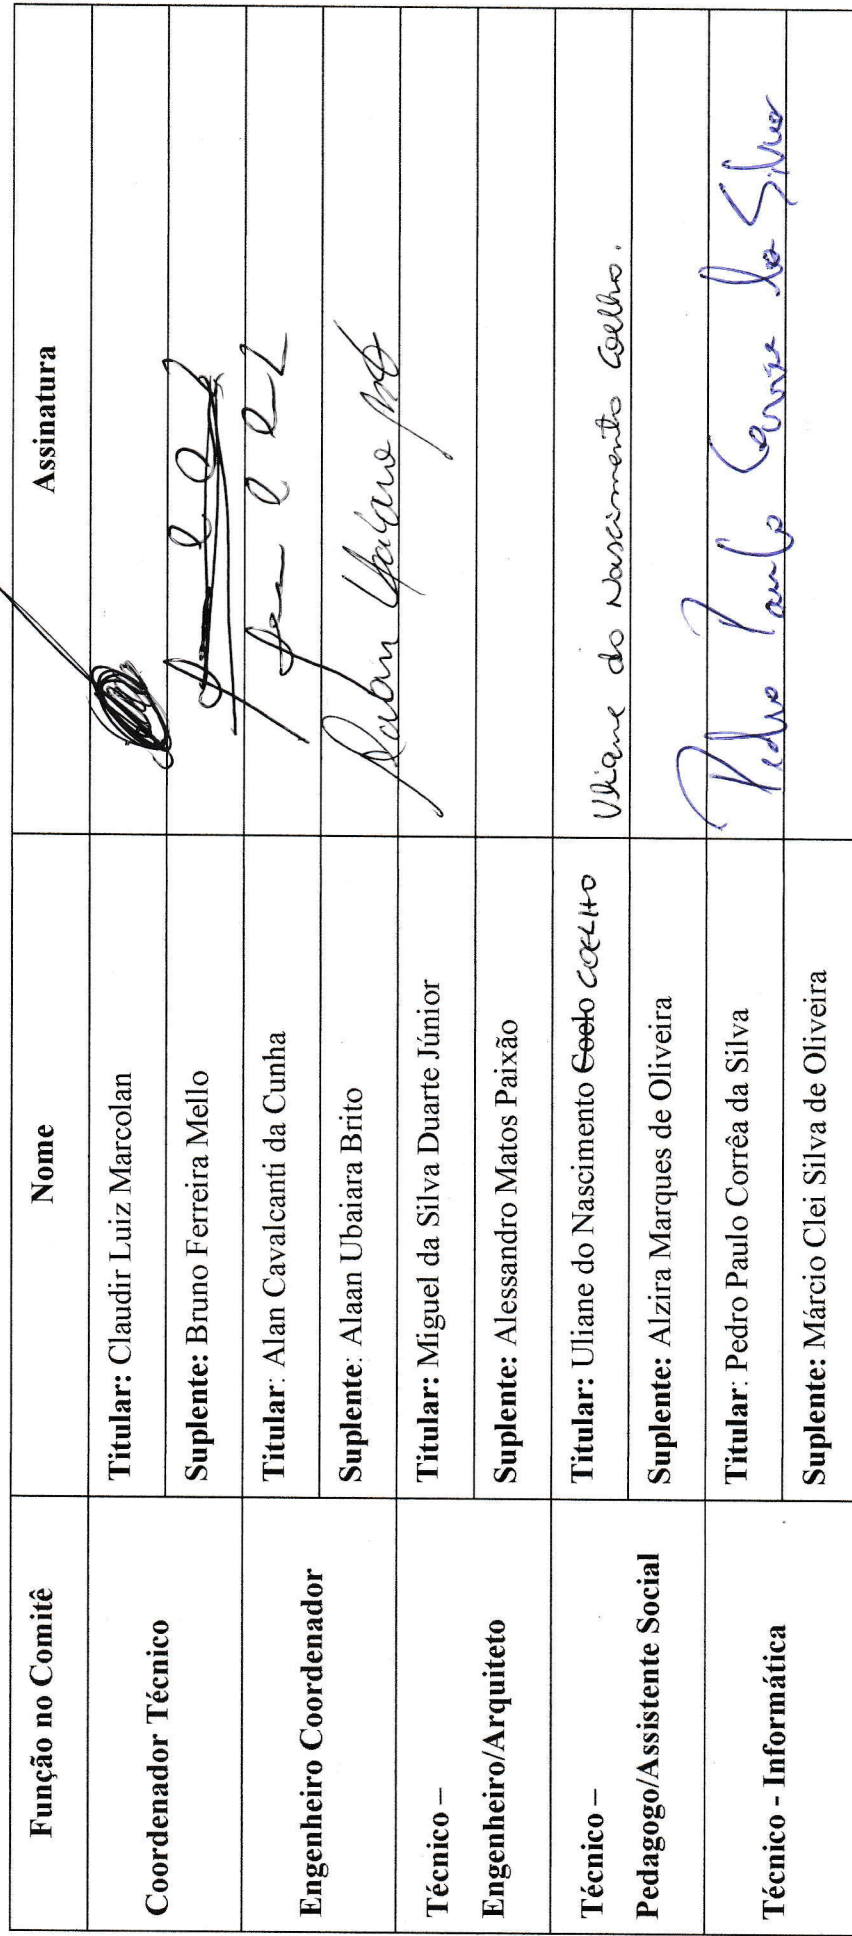 Função no Comitê Nome Assinatura
Coordenador Técnico
Titular: Claudir Luiz Marcolan
Suplente: Bruno Ferreira Mello
Engenheiro Coordenador
Titular: Alan Cavalcanti da Cunha
Suplente: Alaan Ubaiara Brito
Técnico –
Engenheiro/Arquiteto
Titular: Miguel da Silva Duarte Júnior
Suplente: Alessandro Matos Paixão
Técnico –
Pedagogo/Assistente Social
Titular: Uliane do Nascimento Coelo COELHO Uliane do Nascimento Coelho.
Suplente: Alzira Marques de Oliveira
Técnico - Informática
Titular: Pedro Paulo Corrêa da Silva Pedro Paulo Corrêa da Silva
Suplente: Márcio Clei Silva de Oliveira